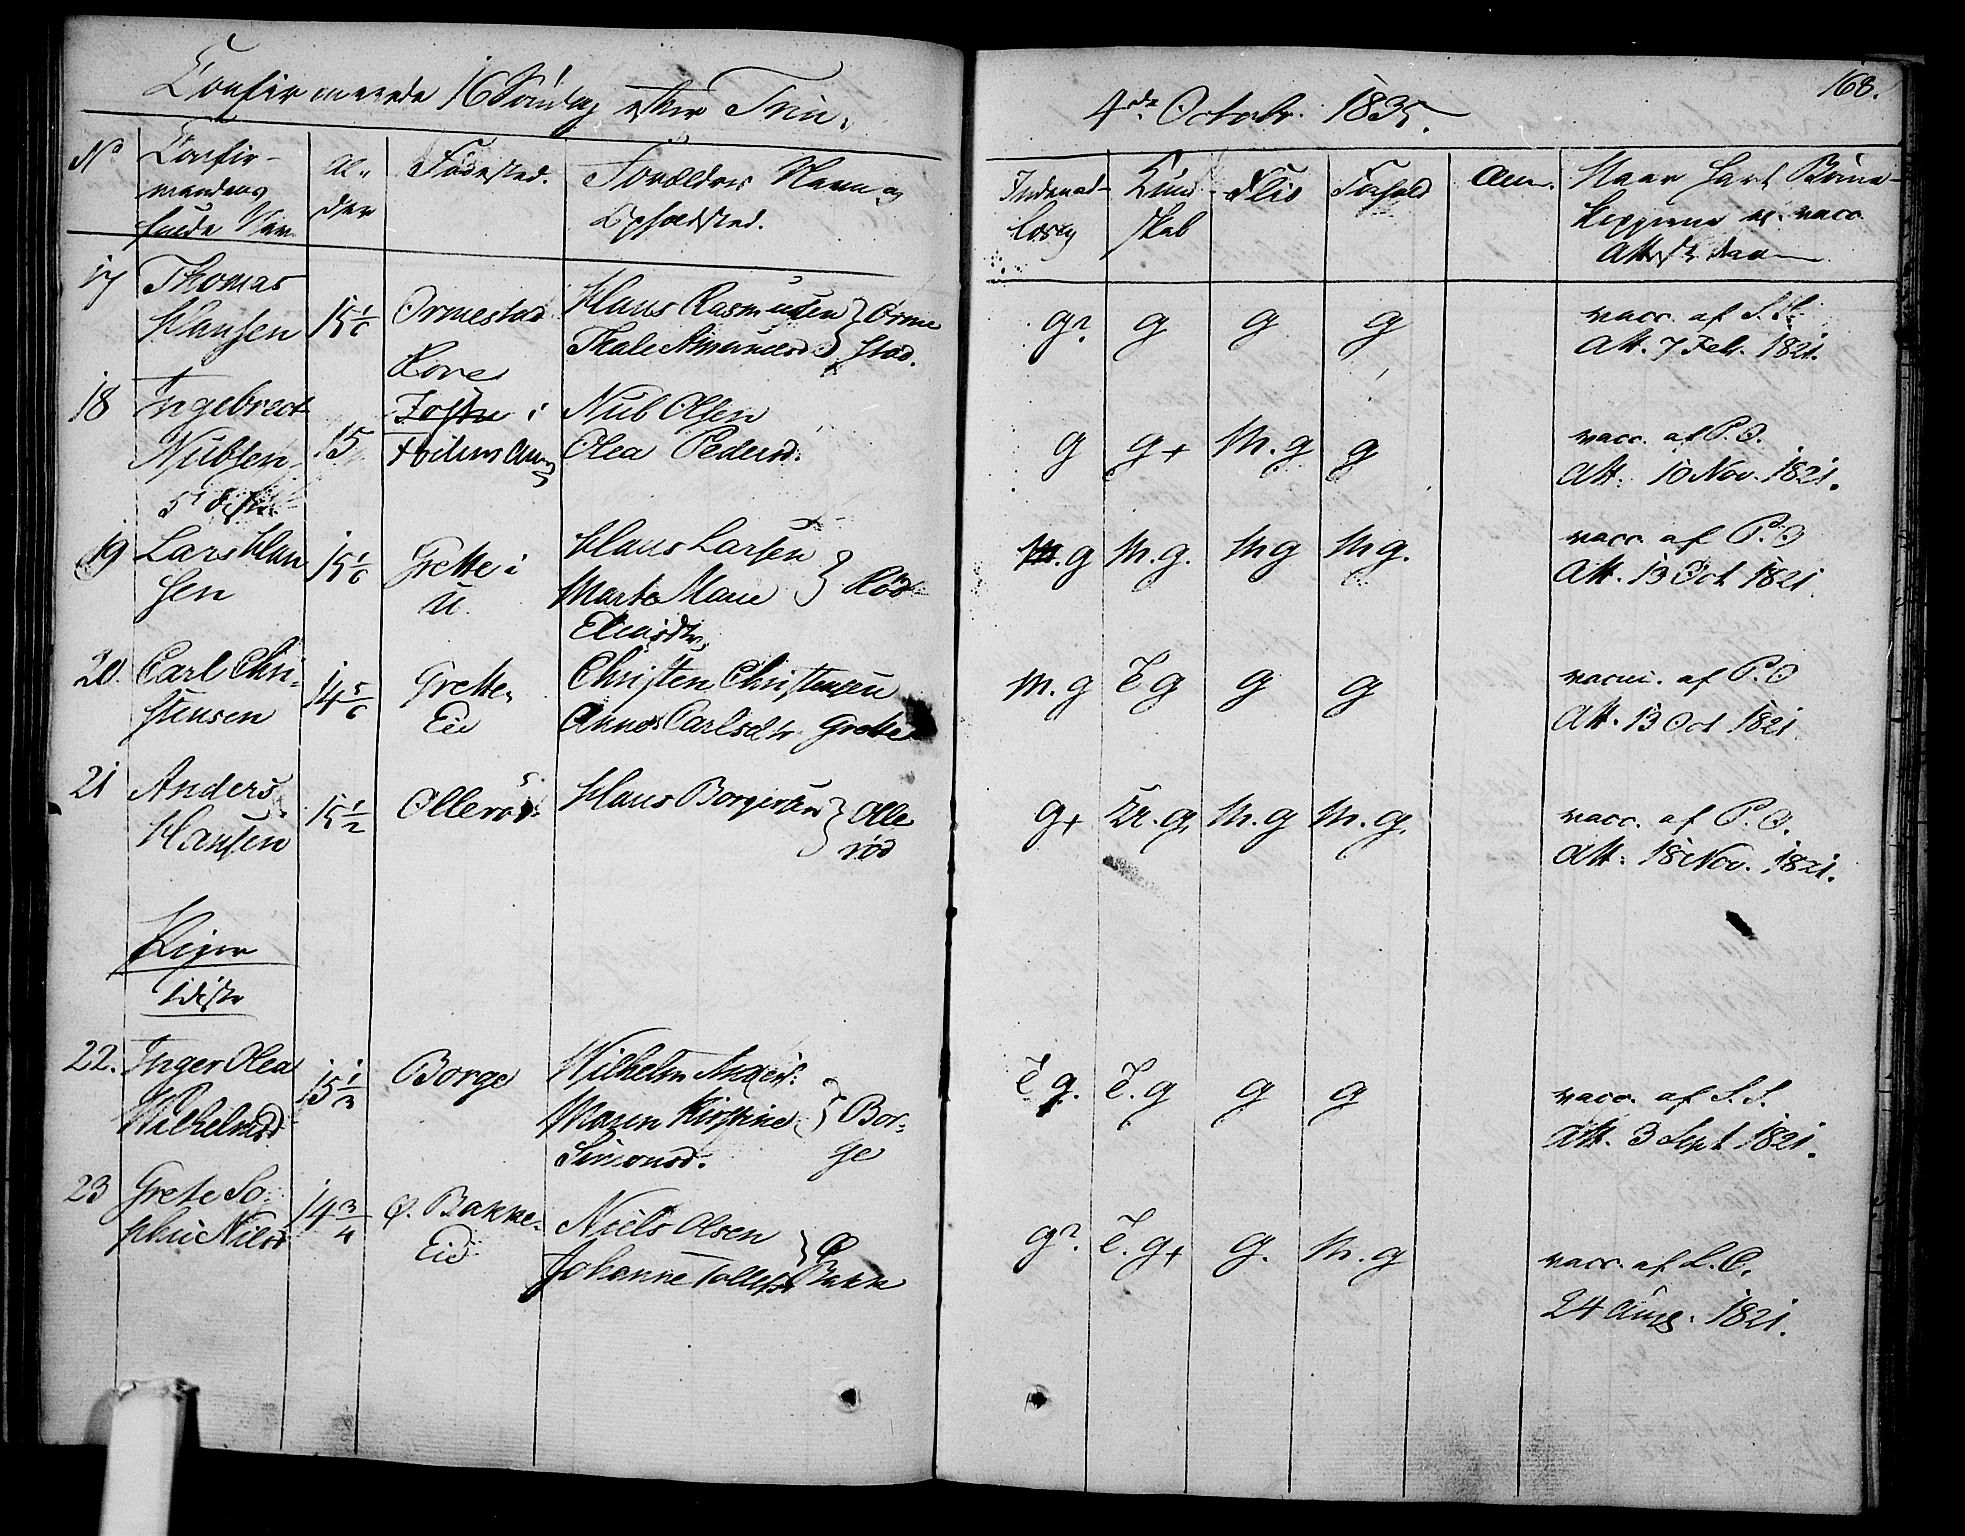 Confirmerede 16 Søndag efter Trin.
4de Octobr. 1835.
168.
No
Confir-
mandens
fulde Navn
Al-
der
Fødested.
Forældres Navn og
Opholdsted.
Indenad-
læsng
Kund
skab
Flid
Forhold
Anm.
Naar havt Børne-
kopperne el. vacc.
Attest dat
17 Thomas
Hansen
15 1/6
Ormestad
Hans Rasmusen
Thale Amundsd
Orme
stad.
g? g g g
vacc. af S.S.
Att. 7 Feb. 1821.
18 Ingebreot
Nubsen
5t distr.
15
i
Nub Olsen
Olea Pedersd.
g g+ M.g g
vacc. af P.O.
Att. 10 Nov. 1821.
19 Lars Han
sen
15 1/6
Grette i
U.
Hans Larsen
Marte Marie
Rød
M.g M.g. Mg Mg.
vacc. af P.O
Att. 13 Oct 1821.
20. Carl Chri-
stensen
14 5/6
Grette
Eie
Christen Christensen
Anne Carlsdtr Grette
M.g T g g g
vacci. af P.O
Att. 13 Oct 1821.
21 Anders
Hansen
15 1/2
Ollerød.
Hans Borgersen
Olle
rød
g+ M.g M.g.
vacc. af P.O.
Att. 18 Nov. 1821.
Piger
1 distr
22. Inger Olea
Wilhelmsd
15 1/3
Borge
Wilhelm
Maren Kirstine
Simonsd.
Bor-
ge
T g. T.g g g
vacc. af S.S.
Att. 3 Sept 1821.
23 Grete So-
phie Nilsd
14 3/4
Ø. Bakke-
Eie
Niels Olsen
Johanne Tollefsd
Ø
Bakke
g? T.g+ g. M.g
vacc. af L.O.
24 Aug. 1821.